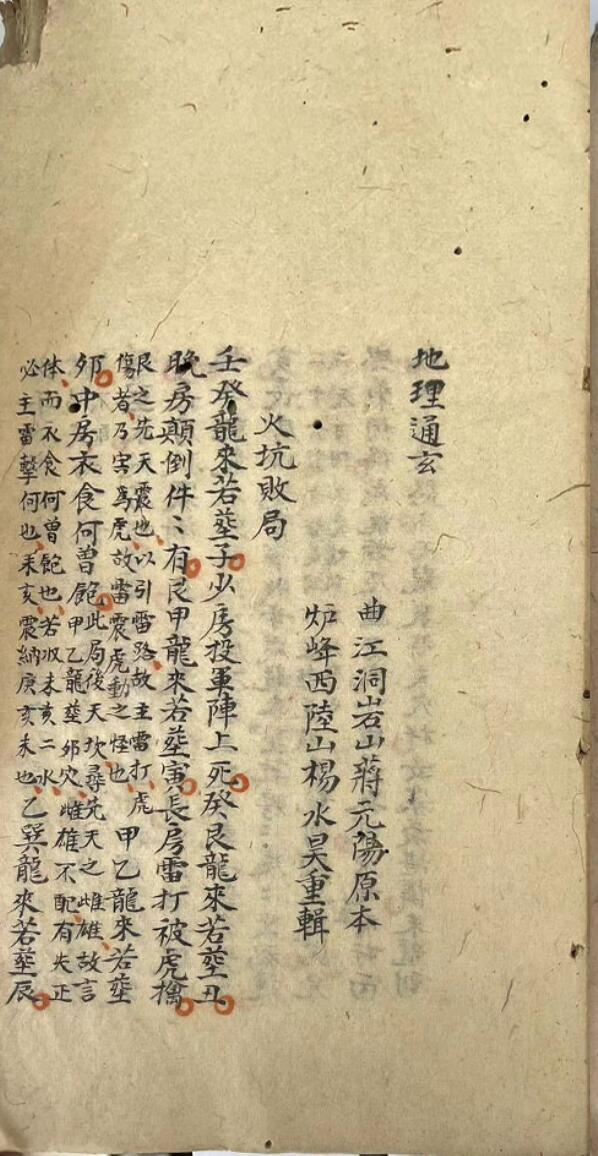 地理通玄
曲江洞岩山蔣元陽原本
炉峰西陸山楊水昊重輯
火坑敗局
壬癸龍來若塟子少房投軍陣上死癸艮龍來若塟丑
晚房顛倒件〻有艮甲龍來若塟寅長房雷打被虎擒
艮之先天震也以引雷路故主雷打虎
傷者乃寅爲虎故雷震虎動之怪也
甲乙龍來若塟
夘中房衣食何曾飽
甲乙龍塟夘穴雌雄不配有失正
此局後天坎尋先天之雌雄故言
体而衣食何曾飽也若收未亥二水
必主雷擊何也未亥震納庚亥未也
乙巽龍來若塟辰